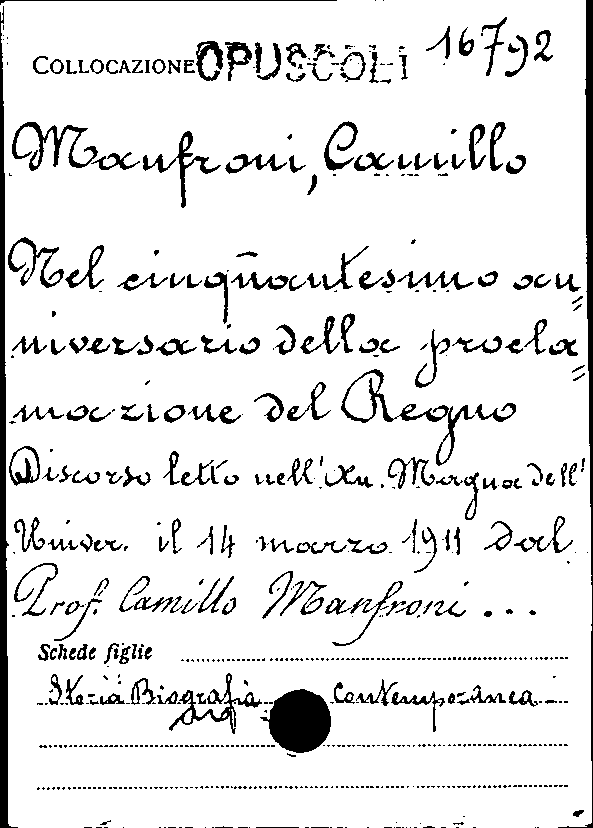 COLLOCAZIONE OPUSCOLI 16792
Manfroni, Camillo
Nel cinquantesimo an=
niversario della procla=
mazione del Regno
Discorso letto nell'Au. Magna dell'
Univer. il 14 marzo 1911 dal
Prof. Camillo Manfroni ...
Schede figlie
Storia Biografia contemporanea